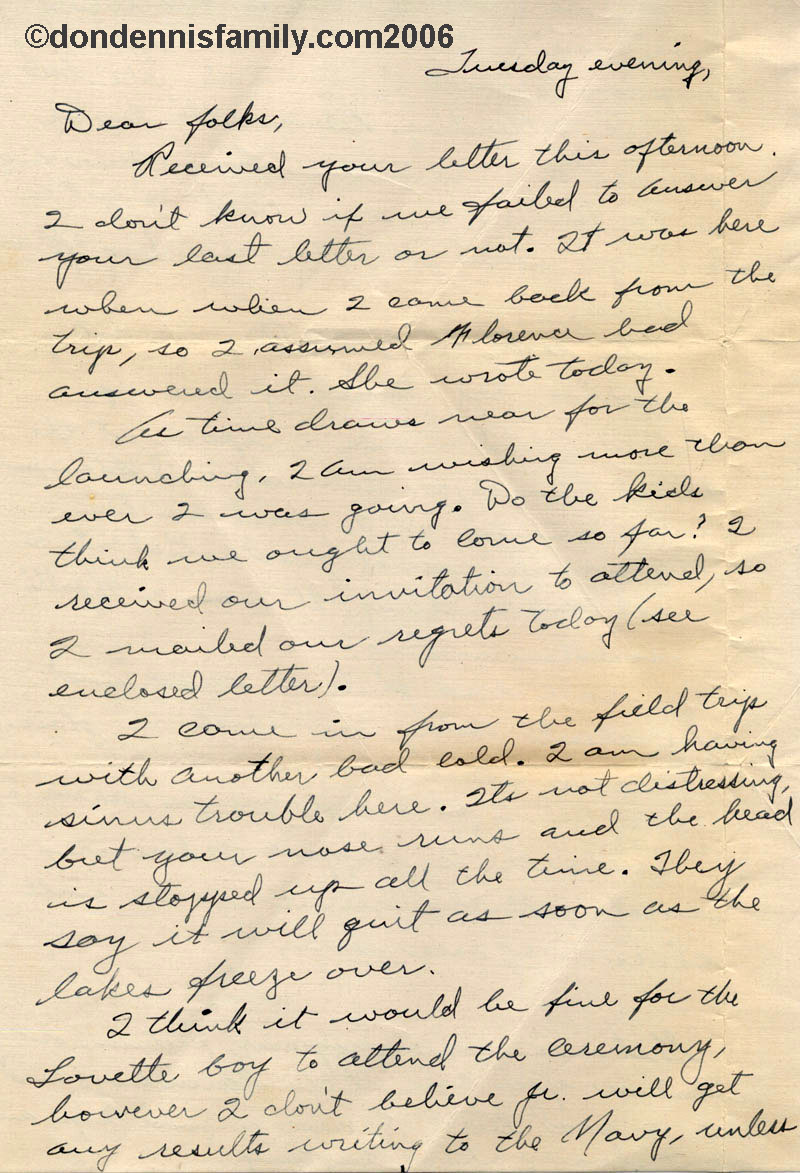 ©dondennisfamily.com2006
Tuesday evening,
Dear folks,
Received your letter this afternoon.
I don't know if we failed to answer
your last letter or not. It was here
when when I came back from the
trip, so I assumed Florence had
answered it. She wrote today.
As time draws near for the
launching, I am wishing more than
ever I was going. Do the kids
think we ought to come so far? I
received our invitation to attend, so
I mailed our regrets today (see
enclosed letter).
I came in from the field trip
with another bad cold. I am having
sinus trouble here. Its not distressing,
but your nose runs and the head
is stopped up all the time. They
say it will quit as soon as the
lakes freeze over.
I think it would be fine for the
Lovette boy to attend the ceremony,
however I don't believe Jr. will get
any results writing to the Navy, unless